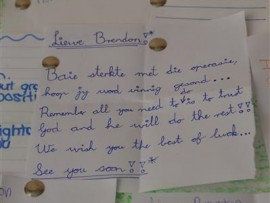 Liewe Brendon!!*
Baie sterkte met die operasie,
hoop jy word vinnig gesond...
Remember all you need to do is to trust
God and he will do the rest!!
We wish you the best of luck...
See you soon!!*
but gre
positi